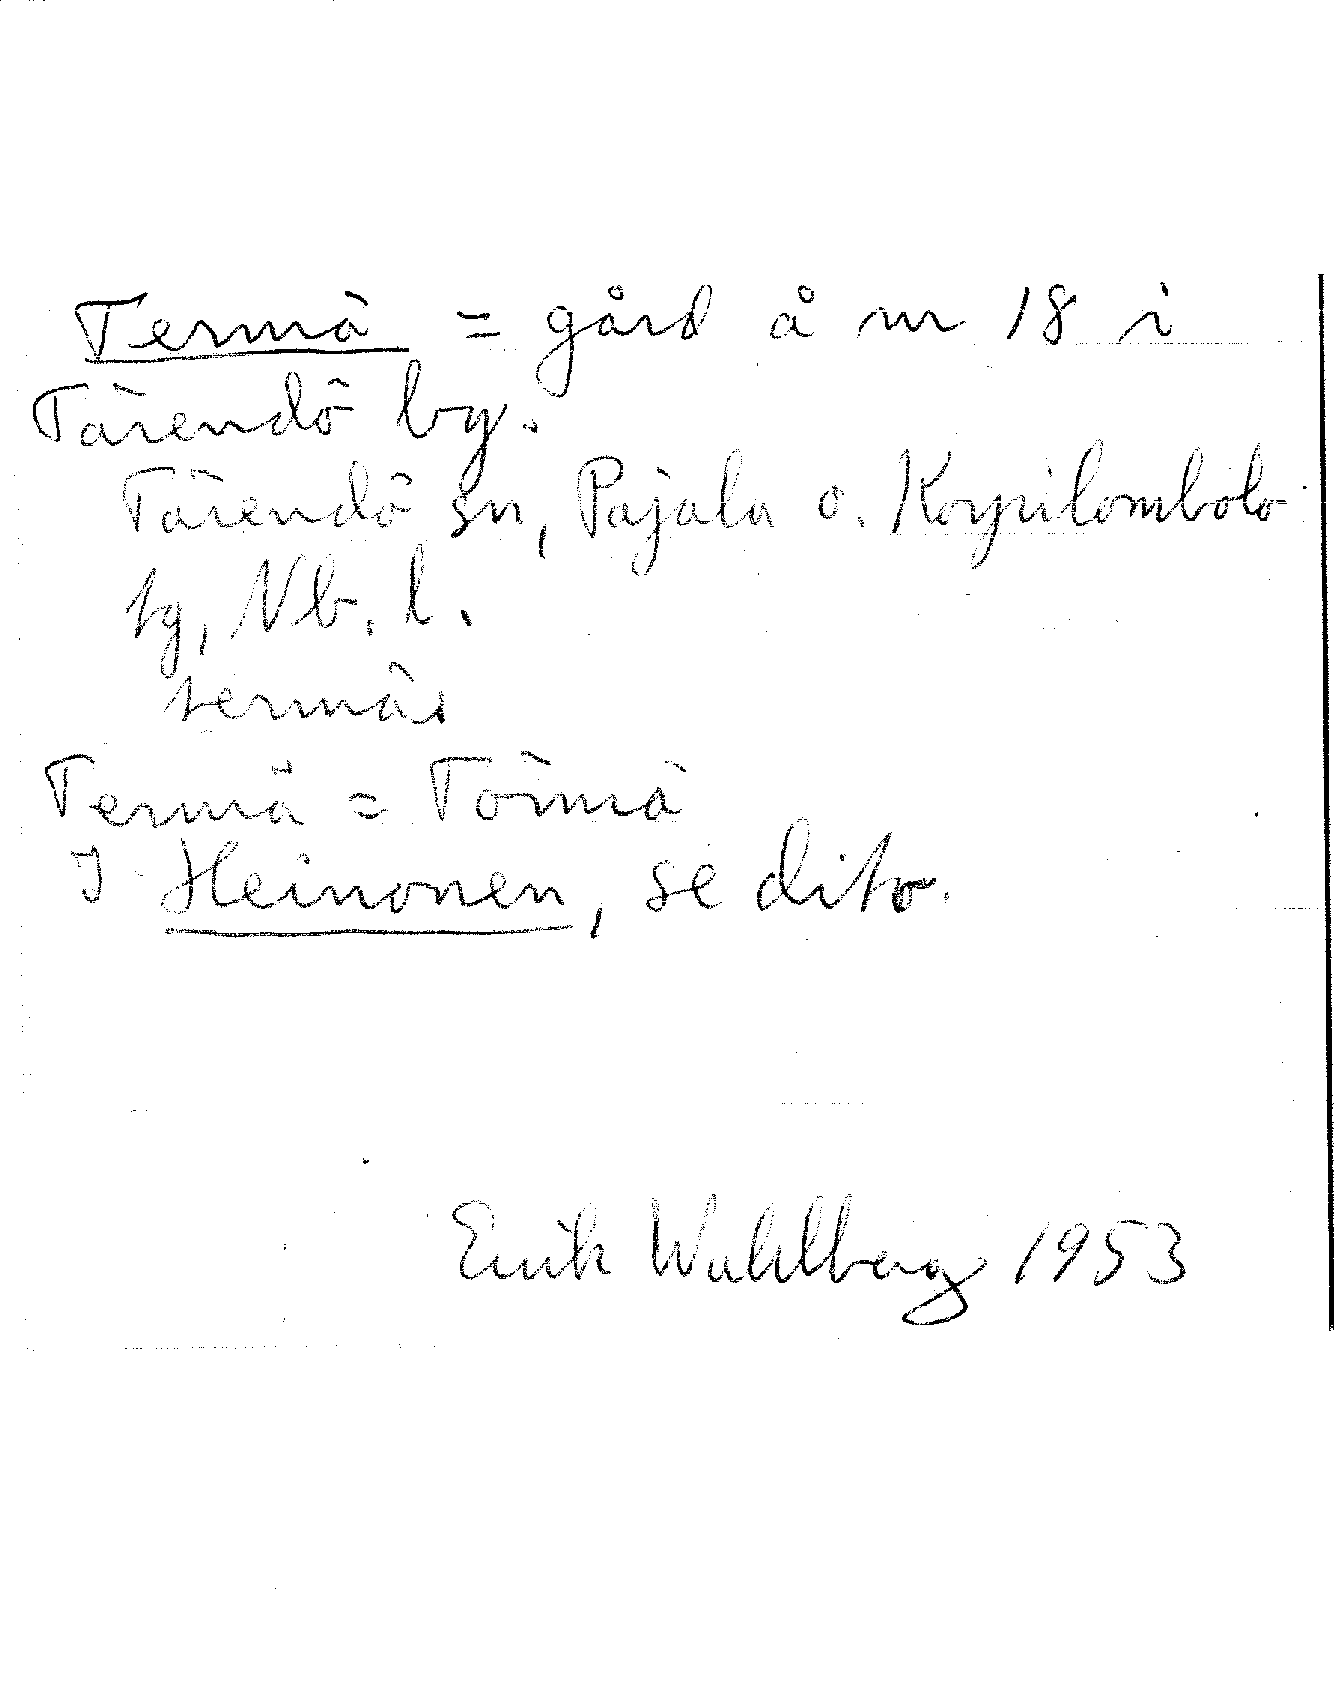 Termä = gård å nr 18 i
Tärendö by.
Tärendö sn, Pajala o. Korpilombolo
tg, Nb. l.
termä.
Termä = Törmä
J Heinonen, se dito.
Erik Wahlberg 1953